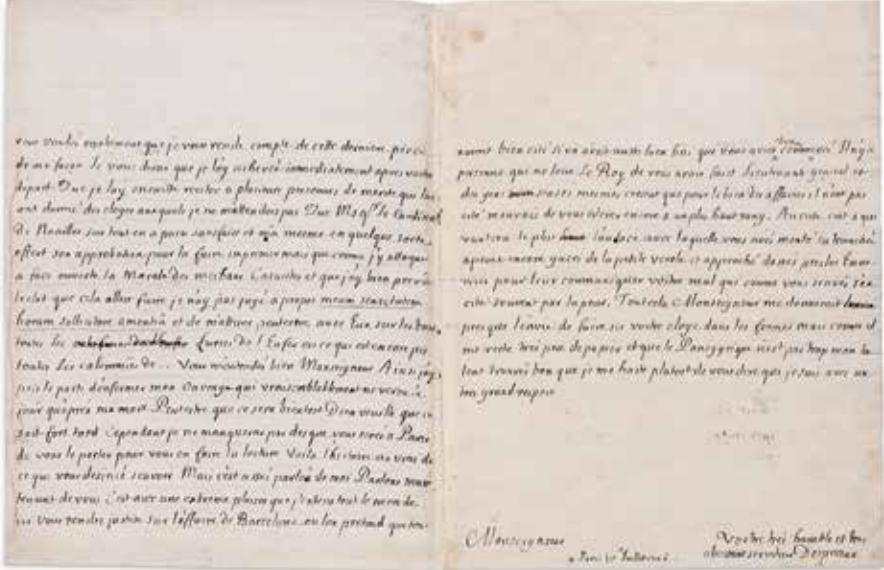 vous voulés egalement que je vous rende compte de cette derniere piece
de ma façon. Je vous dirai que je l'ay achevée immediatement apres vostre
depart. Que je l'ay ensuite recitée a plusieurs personnes de merite qui luy
ont donné des eloges ausquels je ne m'attendois pas Que Mgr le Cardinal
de Noailles sur tout en a paru satisfait et m'a mesme en quelque sorte
offert son approbation pour la faire imprimer mais que comme j'y attaque
a face ouverte la Morale des meschans Casuistes et que j'ay bien préveu
l'eclat que cela alloit faire je n'ay pas jugé a propos meam senectutem
horum sollicitare amentia et de m'attirer peutestre avec Eux sur les bras
toutes les furies de l'Enfer ou ce qui est encore pis
toutes les calomnies de... Vous m'entendés bien Monseigneur Ainsi j'ay
pris le parti d'enfermer mon Ouvrage qui vraisemblablement ne verra le
jour qu'apres ma mort Peutestre que ce sera bientost Dieu veuille que ce
soit fort tard Cependant je ne manquerai pas des que vous serés a Paris
de vous le porter pour vous en faire la lecture Voila l'histoire au vrai de
ce que vous desiriés sçavoir Mais c'est assés parler de moi Parlons main
tenant de vous C'est avec une extreme plaisir que j'entens tout le monde
ici vous rendre justice sur l'affaire de Barcelone ou l'on pretend que tout
auroit bien esté si on avoit aussi bien fini que vous aviés bien commencé Il n'y a
personne qui ne loue Le Roy de vous avoir fait Lieutenant general et
des gens sensés mesmes croient que pour le bien des affaires il n'eut pas
esté mauvais de vous elever encore a un plus haut rang. Au reste c'est a qui
vantera le plus l'audace avec laquelle vous avés monté la tranchée
a peine encore gueri de la petite verole et approché d'assés pres les Enne
mis pour leur communiquer vostre mal qui comme vous sçavés s'ex
cite souvent par la peur. Tout cela Monseigneur me donneroit
presque l'envie de faire ici vostre eloge dans les formes mais comme il
me reste tres peu de papier et que le Panegyrique n'est pas trop mon ta
lent trouvés bon que je me haste plutost de vous dire que je suis avec un
tres grand respect
Monseigneur
Vostre tres humble et tres
obeissant serviteur Despreaux